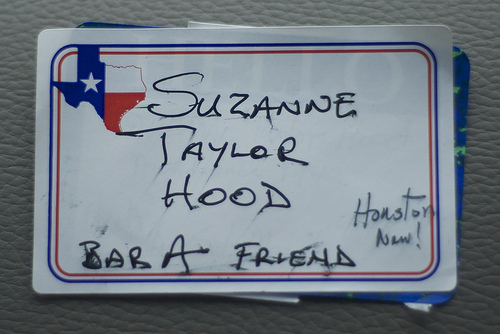 SUZANNE
TAYLOR
HOOD
BAB A FRIEND
Houston
Now!